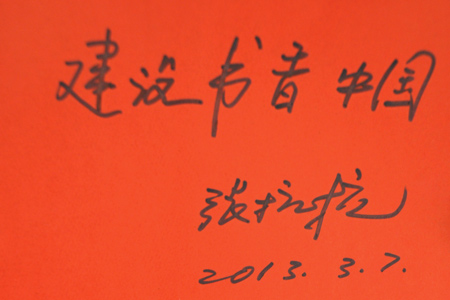 建设书香中国
张抗抗
2013.3.7.